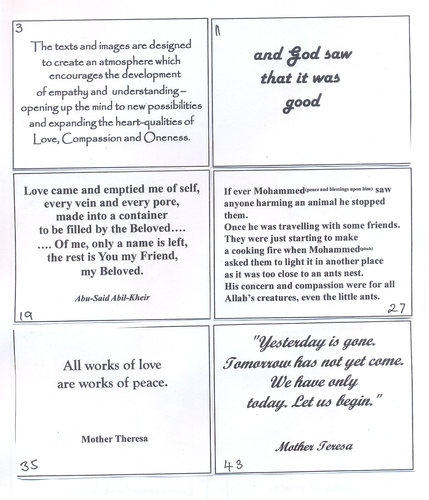 3
The texts and images are designed
to create an atmosphere which
encourages the development
of empathy and understanding–
opening up the mind to new possibilities
and expanding the heart-qualities of
Love, Compassion and Oneness.
11
and God saw
that it was
good
Love came and emptied me of self,
every vein and every pore,
made into a container
to be filled by the Beloved….
…. Of me, only a name is left,
the rest is You my Friend,
my Beloved.
Abu-Said Abil-Kheir
19
If ever Mohammed(peace and blessings upon him) saw
anyone harming an animal he stopped
them.
Once he was travelling with some friends.
They were just starting to make
a cooking fire when Mohammed(pbuh)
asked them to light it in another place
as it was too close to an ants nest.
His concern and compassion were for all
Allah's creatures, even the little ants.
27
All works of love
are works of peace.
Mother Theresa
35
"Yesterday is gone.
Tomorrow has not yet come.
We have only
today. Let us begin."
Mother Teresa
43